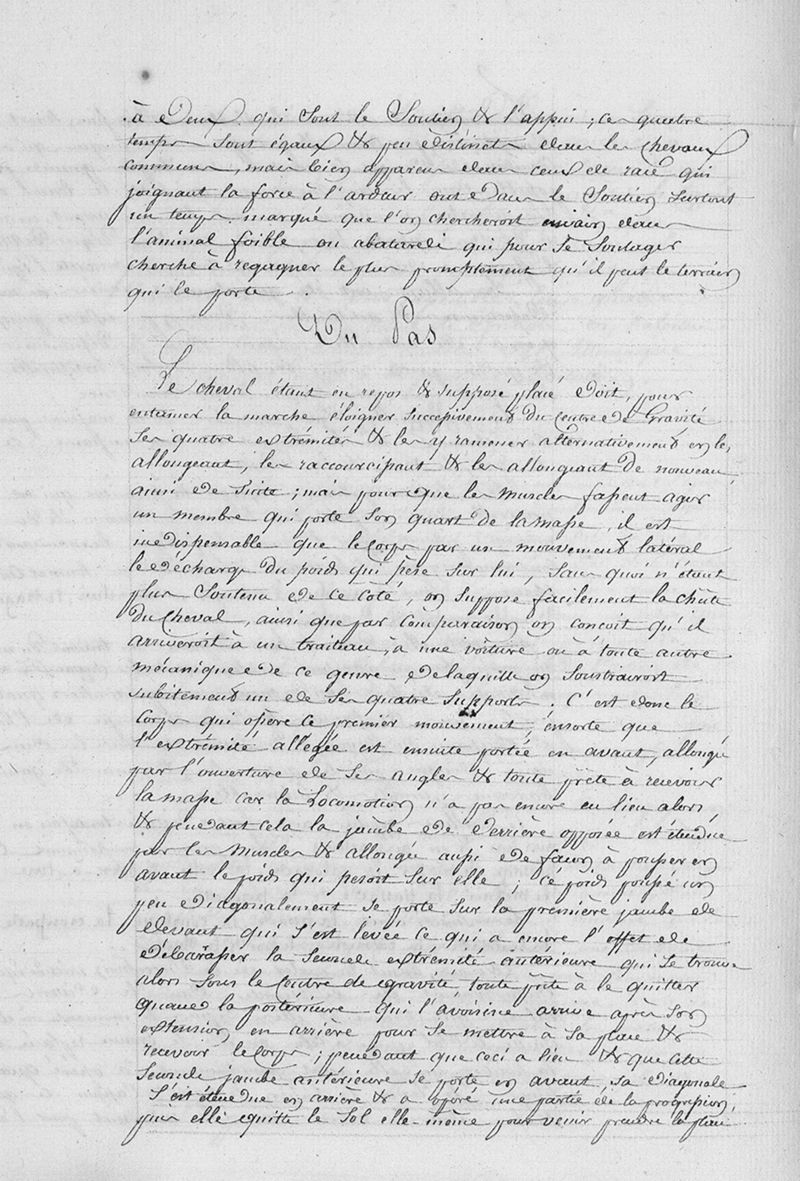 à Deux qui sont le Soutien & l'appui ; ces quatre
temps sont égaux & peu distincts dans les chevaux
communs, mais bien apparens dans ceux de race qui
joignant la force à l'ardeur ont dans le Soutien surtout
un temps marqué que l'on chercheroit envain dans
l'animal foible ou abatardi qui pour se Soulager
cherche à regagner le plus promptement qu'il peut le terrain
qui le porte.
Du Pas
Le cheval étant en repos & supposé placé doit, pour
entamer la marche éloigner successivement du centre de Gravité
ses quatre extrémités & les y ramener alternativement en les
allongeant, les raccourcissant & les allongeant de nouveau,
ainsi de suite ; mais pour que les muscles fassent agir
un membre qui porte son quart de la masse, il est
indispensable que le Corps par un mouvement latéral
le décharge du poids qui pèse sur lui, sans quoi n'étant
plus Soutenu de ce coté, on suppose facilement la chûte
du cheval, ainsi que par comparaison on concoit qu'il
arriveroit à un traiteau, à une voiture ou à toute autre
mécanique de ce genre de laquelle on Soustrairoit
subitement un de ses quatre supports. C'est donc le
Corps qui opère ce premier mouvement, ensorte que
l'extrémité allégée est ensuite portée en avant, allongée
par l'ouverture de ses angles & toute prête à recevoir
la masse car la Locomotion n'a pas encore eu lieu alors,
& pendant cela la jambe de derrière opposée est étendue
par les Muscles & allongée aussi de façon à pousser en
avant le poids qui pesoit sur elle ; ce poids poussé un
peu diagonalement se porte sur la première jambe de
devant qui s'est levée ce qui a encore l'effet de
débarasser la Seconde extrémité antérieure qui se trouve
alors sous le Centre de gravité, toute prête à le quitter
quand la postérieure qui l'avoisine arrive après son
extension en arrière pour se mettre à sa place &
recevoir le Corps ; pendant que ceci a lieu & que cette
Seconde jambe antérieure se porte en avant, sa diagonale
s'est étendue en arrière & a opéré une partie de la progression,
puis elle quitte le sol elle-même pour venir prendre la place